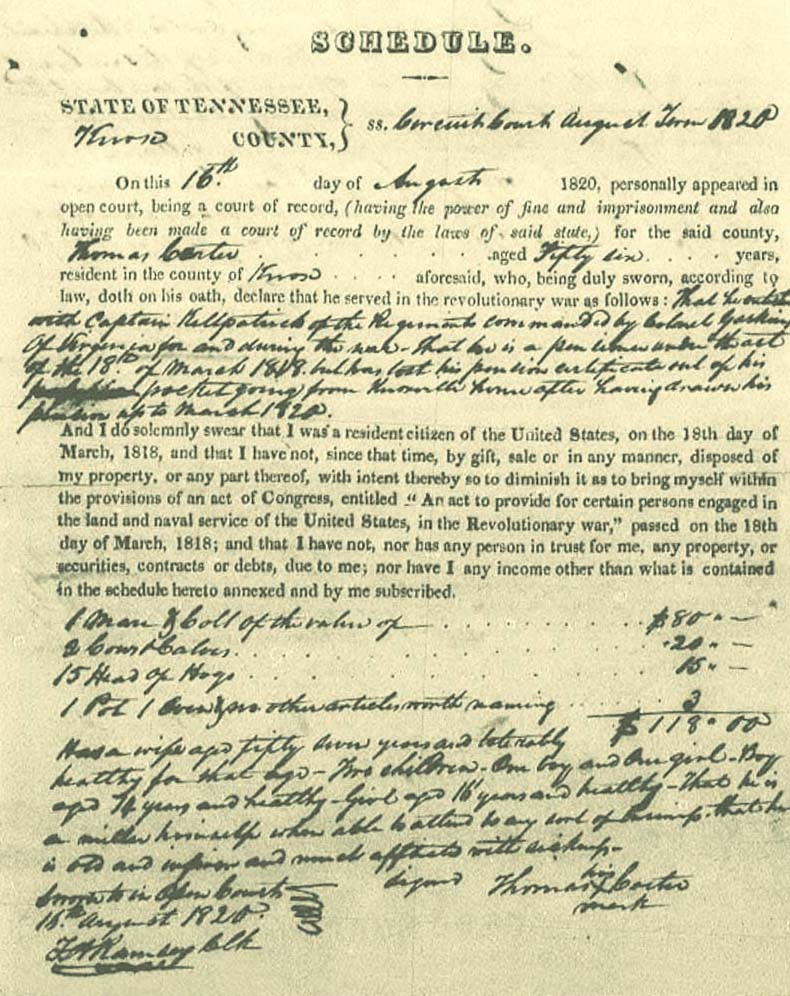 SCHEDULE.
STATE OF TENNESSEE,
Knox COUNTY, } ss. Circuit Court August Term 1820
On this 16th day of August 1820, personally appeared in
open court, being a court of record, (having the power of fine and imprisonment and also
having been made a court of record by the laws of said state,) for the said county,
Thomas Carter aged Fifty six years,
resident in the county of Knox aforesaid, who, being duly sworn, according to
law, doth on his oath, declare that he served in the revolutionary war as follows: That he
with Captain Killpatrick of the Regiment commanded by Colonel
Of Virginia for and during the war - That he is a pensioner under the act
of the 18th of March 1818. but has lost his pension certificate out of his
pocket going from Knoxville home after having drawn his
pension up to March 1820.
And I do solemnly swear that I was a resident citizen of the United States, on the 18th day of
March, 1818, and that I have not, since that time, by gift, sale or in any manner, disposed of
my property, or any part thereof, with intent thereby so to diminish it as to bring myself within
the provisions of an act of Congress, entitled "An act to provide for certain persons engaged in
the land and naval service of the United States, in the Revolutionary war," passed on the 18th
day of March, 1818; and that I have not, nor has any person in trust for me, any property, or
securities, contracts or debts, due to me; nor have I any income other than what is contained
in the schedule hereto annexed and by me subscribed.
1 Mare & Colt of the value of $80 " —
2 Cows & Calves 20 " —
15 Head of Hogs 15 " —
1 Pot 1 Oven & no other articles worth naming 3
$118 " 00
Has a wife aged fifty seven years and tolerably
healthy for that age - Two children - One boy and One girl - Boy
aged 14 years and healthy - Girl aged 16 years and healthy - That he is
a miller himself when able to attend to any sort of business - that he
is old and infirm and much afflicted with sickness -
Sworn to in Open Court signed Thomas his Carter
16th August 1820. mark
Clk